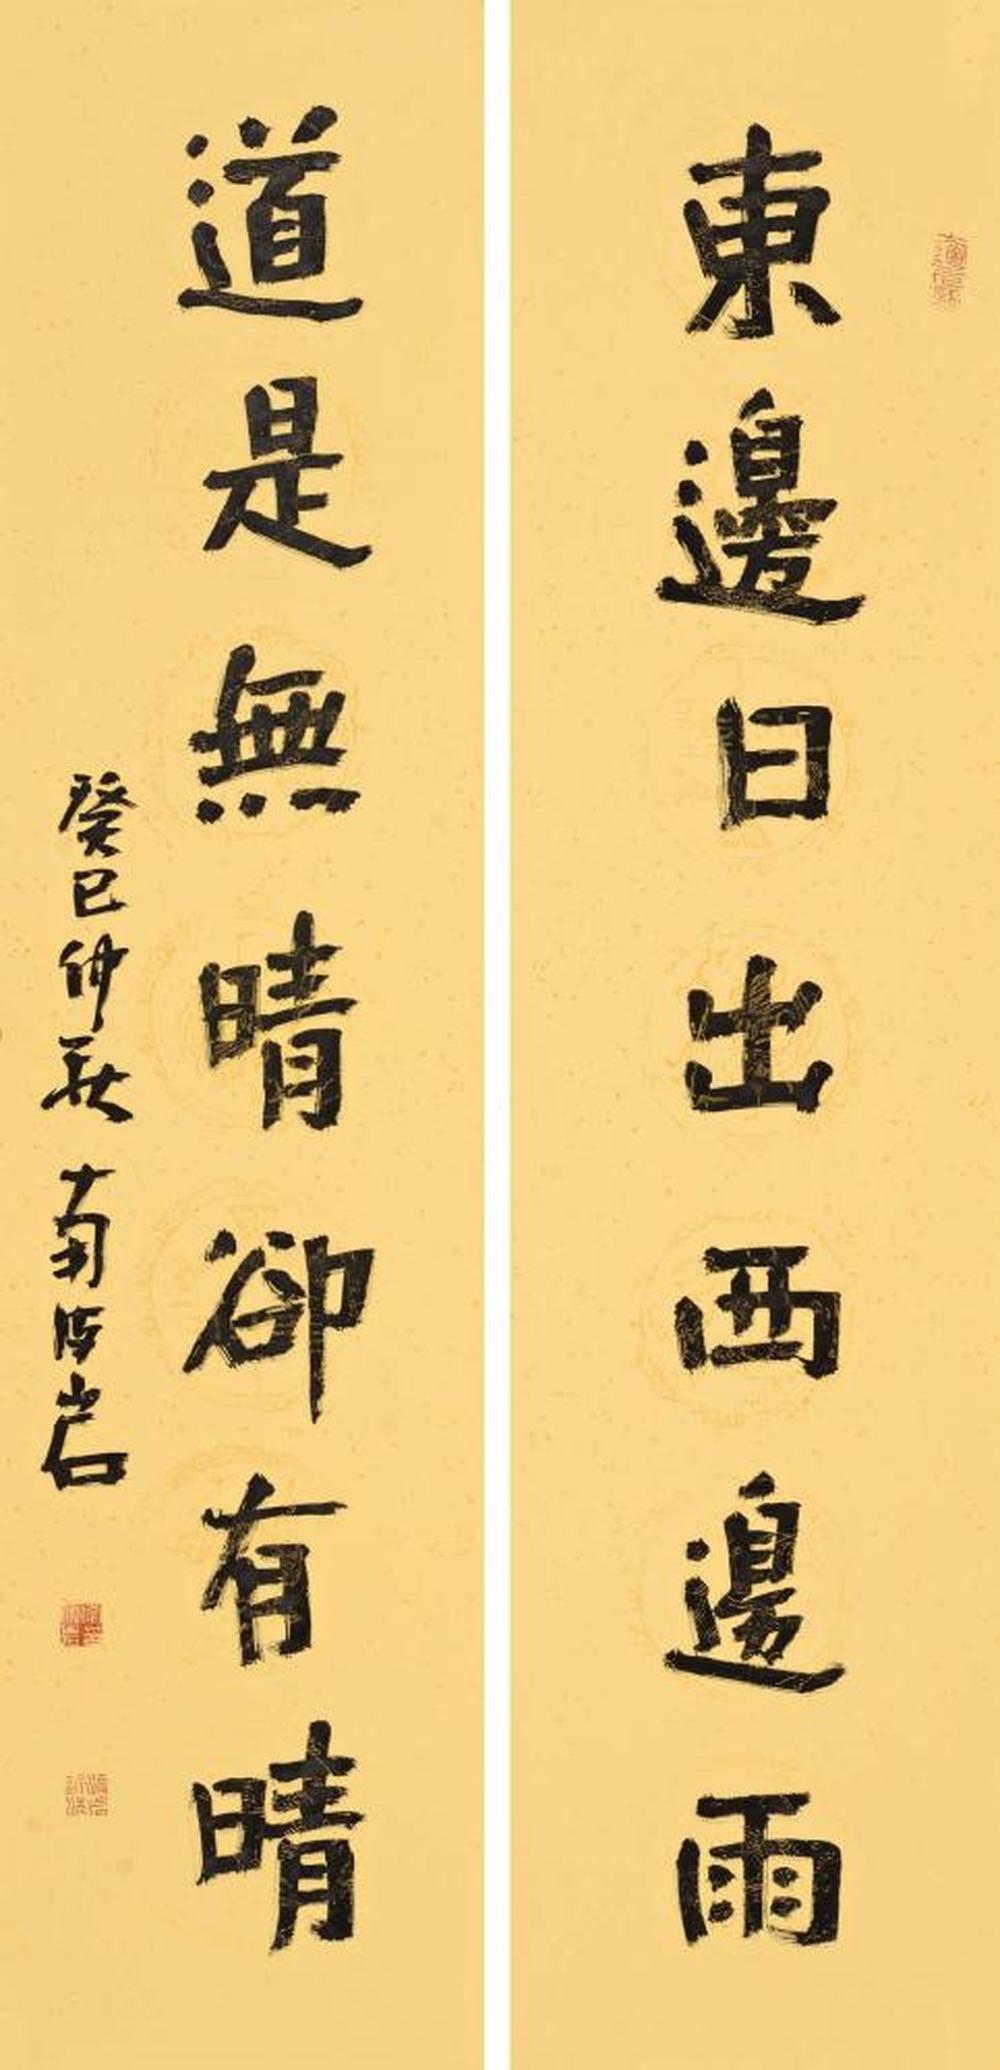 東邊日出西邊雨
道是無晴卻有晴
癸巳仲秋 南海岩